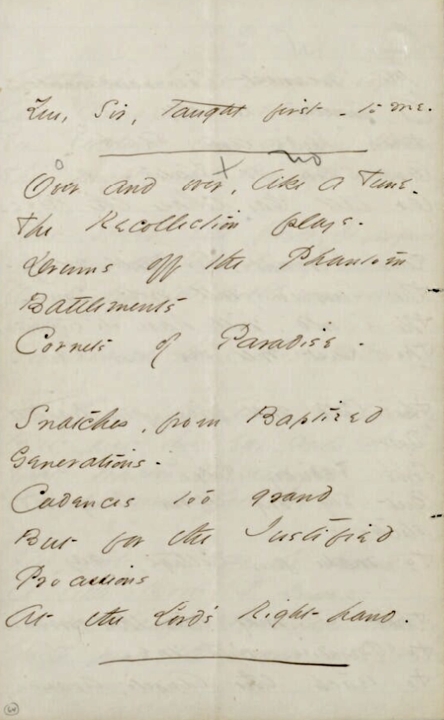 You, Sir, taught first - to me.
o x no
Over and over, like a Tune -
The Recollection plays -
Drums off the Phantom
Battlements
Cornets of Paradise -
Snatches, from Baptized
Generations -
Cadences too grand
But for the Justified
Processions
At the Lord's Right hand.